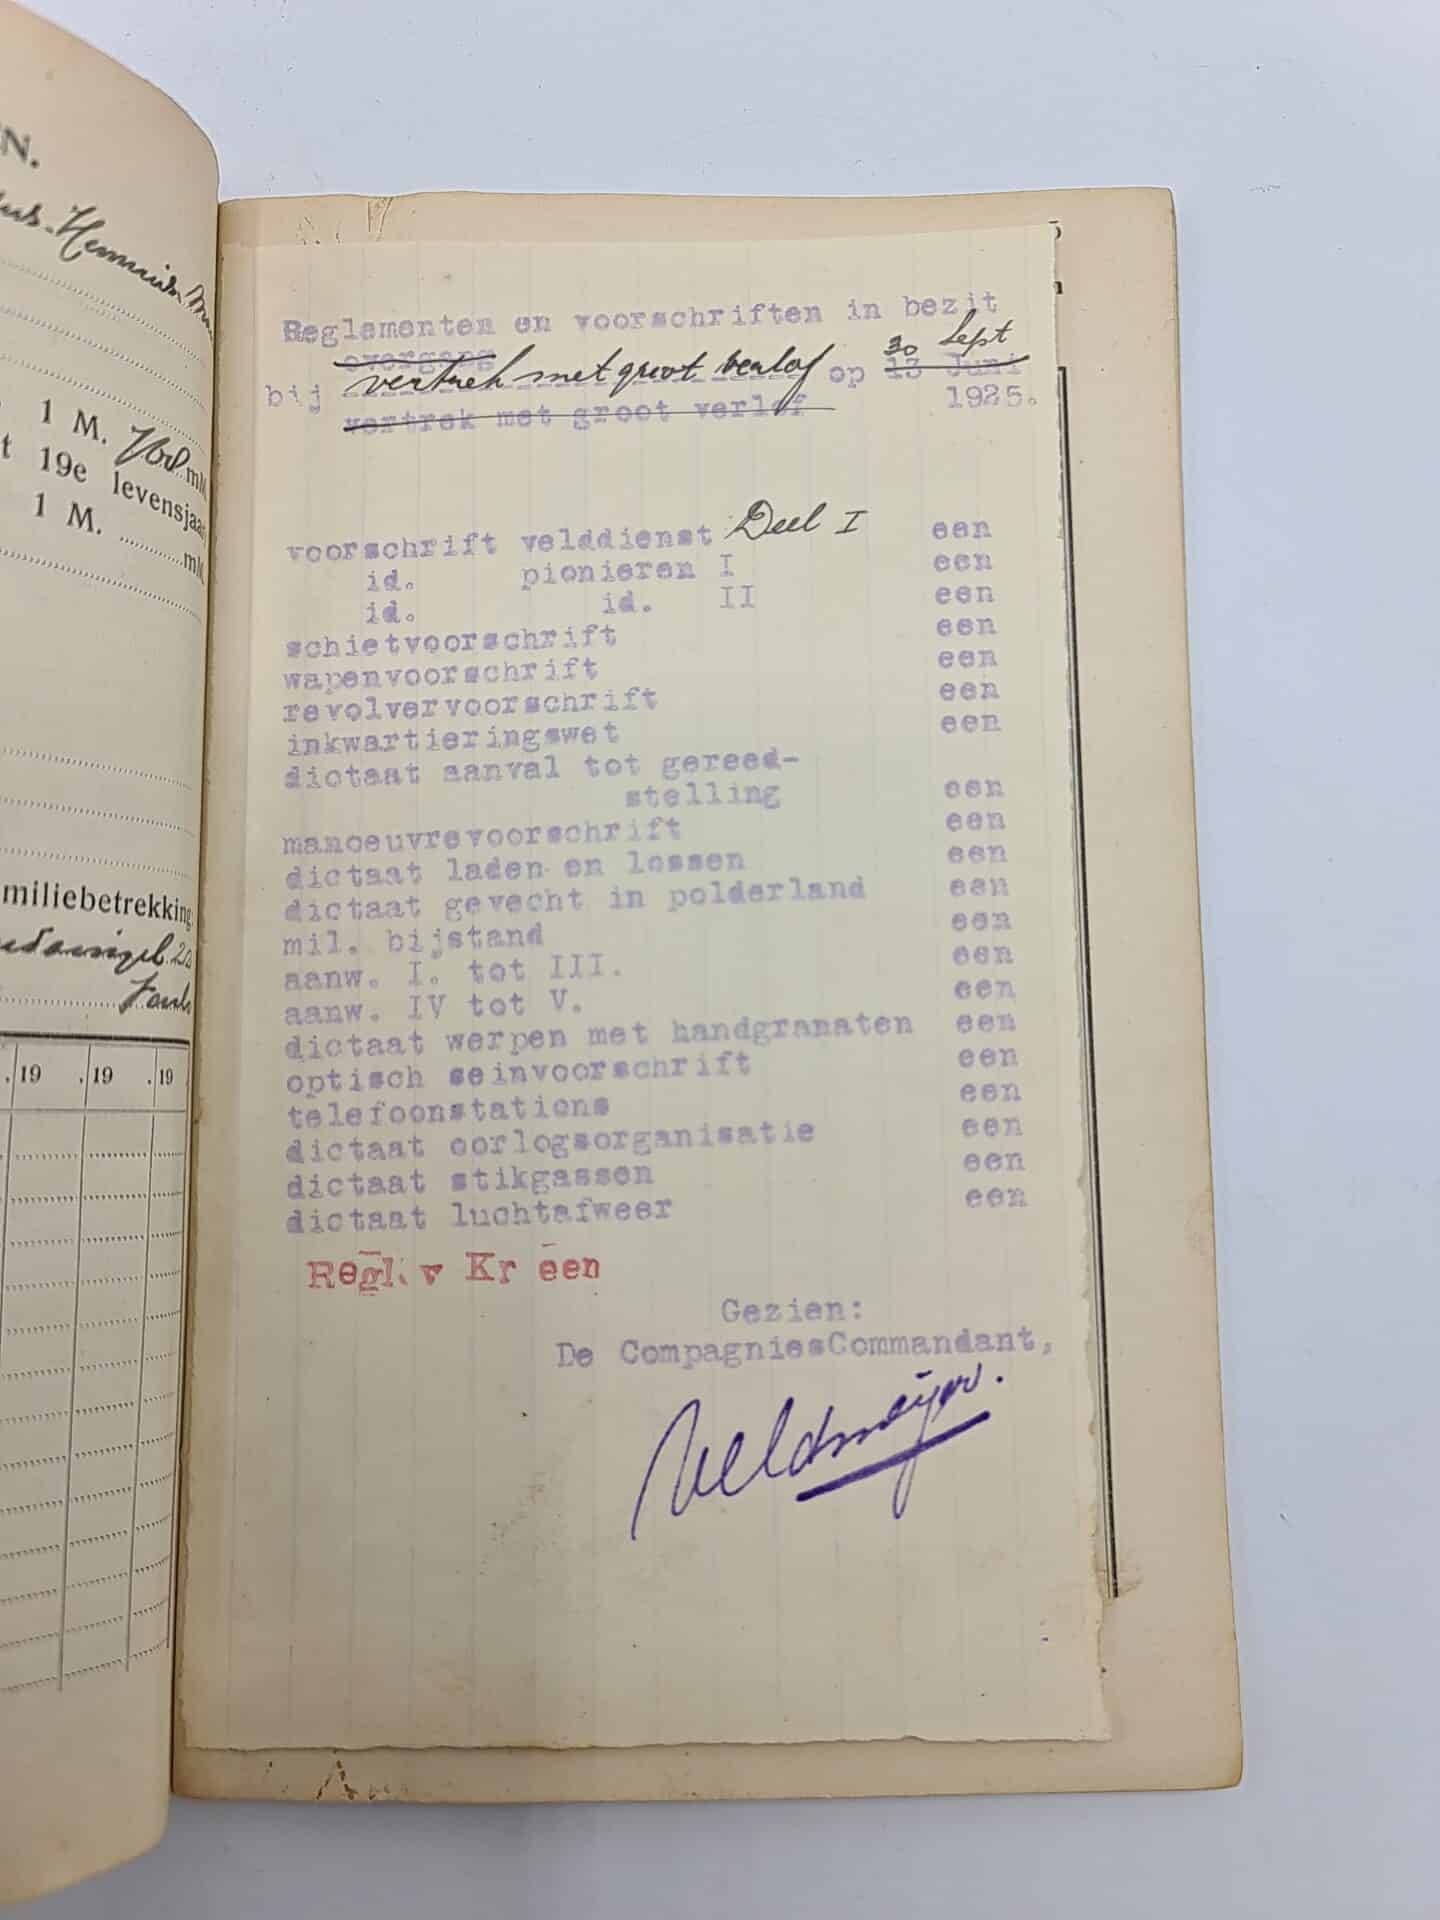 N.
Hennrik
1 M. mM.
t 19e levensjaar
1 M. mM.
miliebetrekking:
19 19 19
5
Reglementen en voorschriften in bezit
overgang 30 Sept
bij vertrek met groot verlof op 13 Juni
vertrek met groot verlof 1925.
voorschrift velddienst Deel I een
id. pionieren I een
id. id. II een
schietvoorschrift een
wapenvoorschrift een
revolvervoorschrift een
inkwartieringswet een
dictaat aanval tot gereed-
stelling een
manoeuvrevoorschrift een
dictaat laden en lossen een
dictaat gevecht in polderland een
mil. bijstand een
aanw. I. tot III. een
aanw. IV tot V. een
dictaat werpen met handgranaten een
optisch seinvoorschrift een
telefoonstations een
dictaat oorlogsorganisatie een
dictaat stikgassen een
dictaat luchtafweer een
Regl. v Kr een
Gezien:
De CompagniesCommandant,
Veldmeijer.